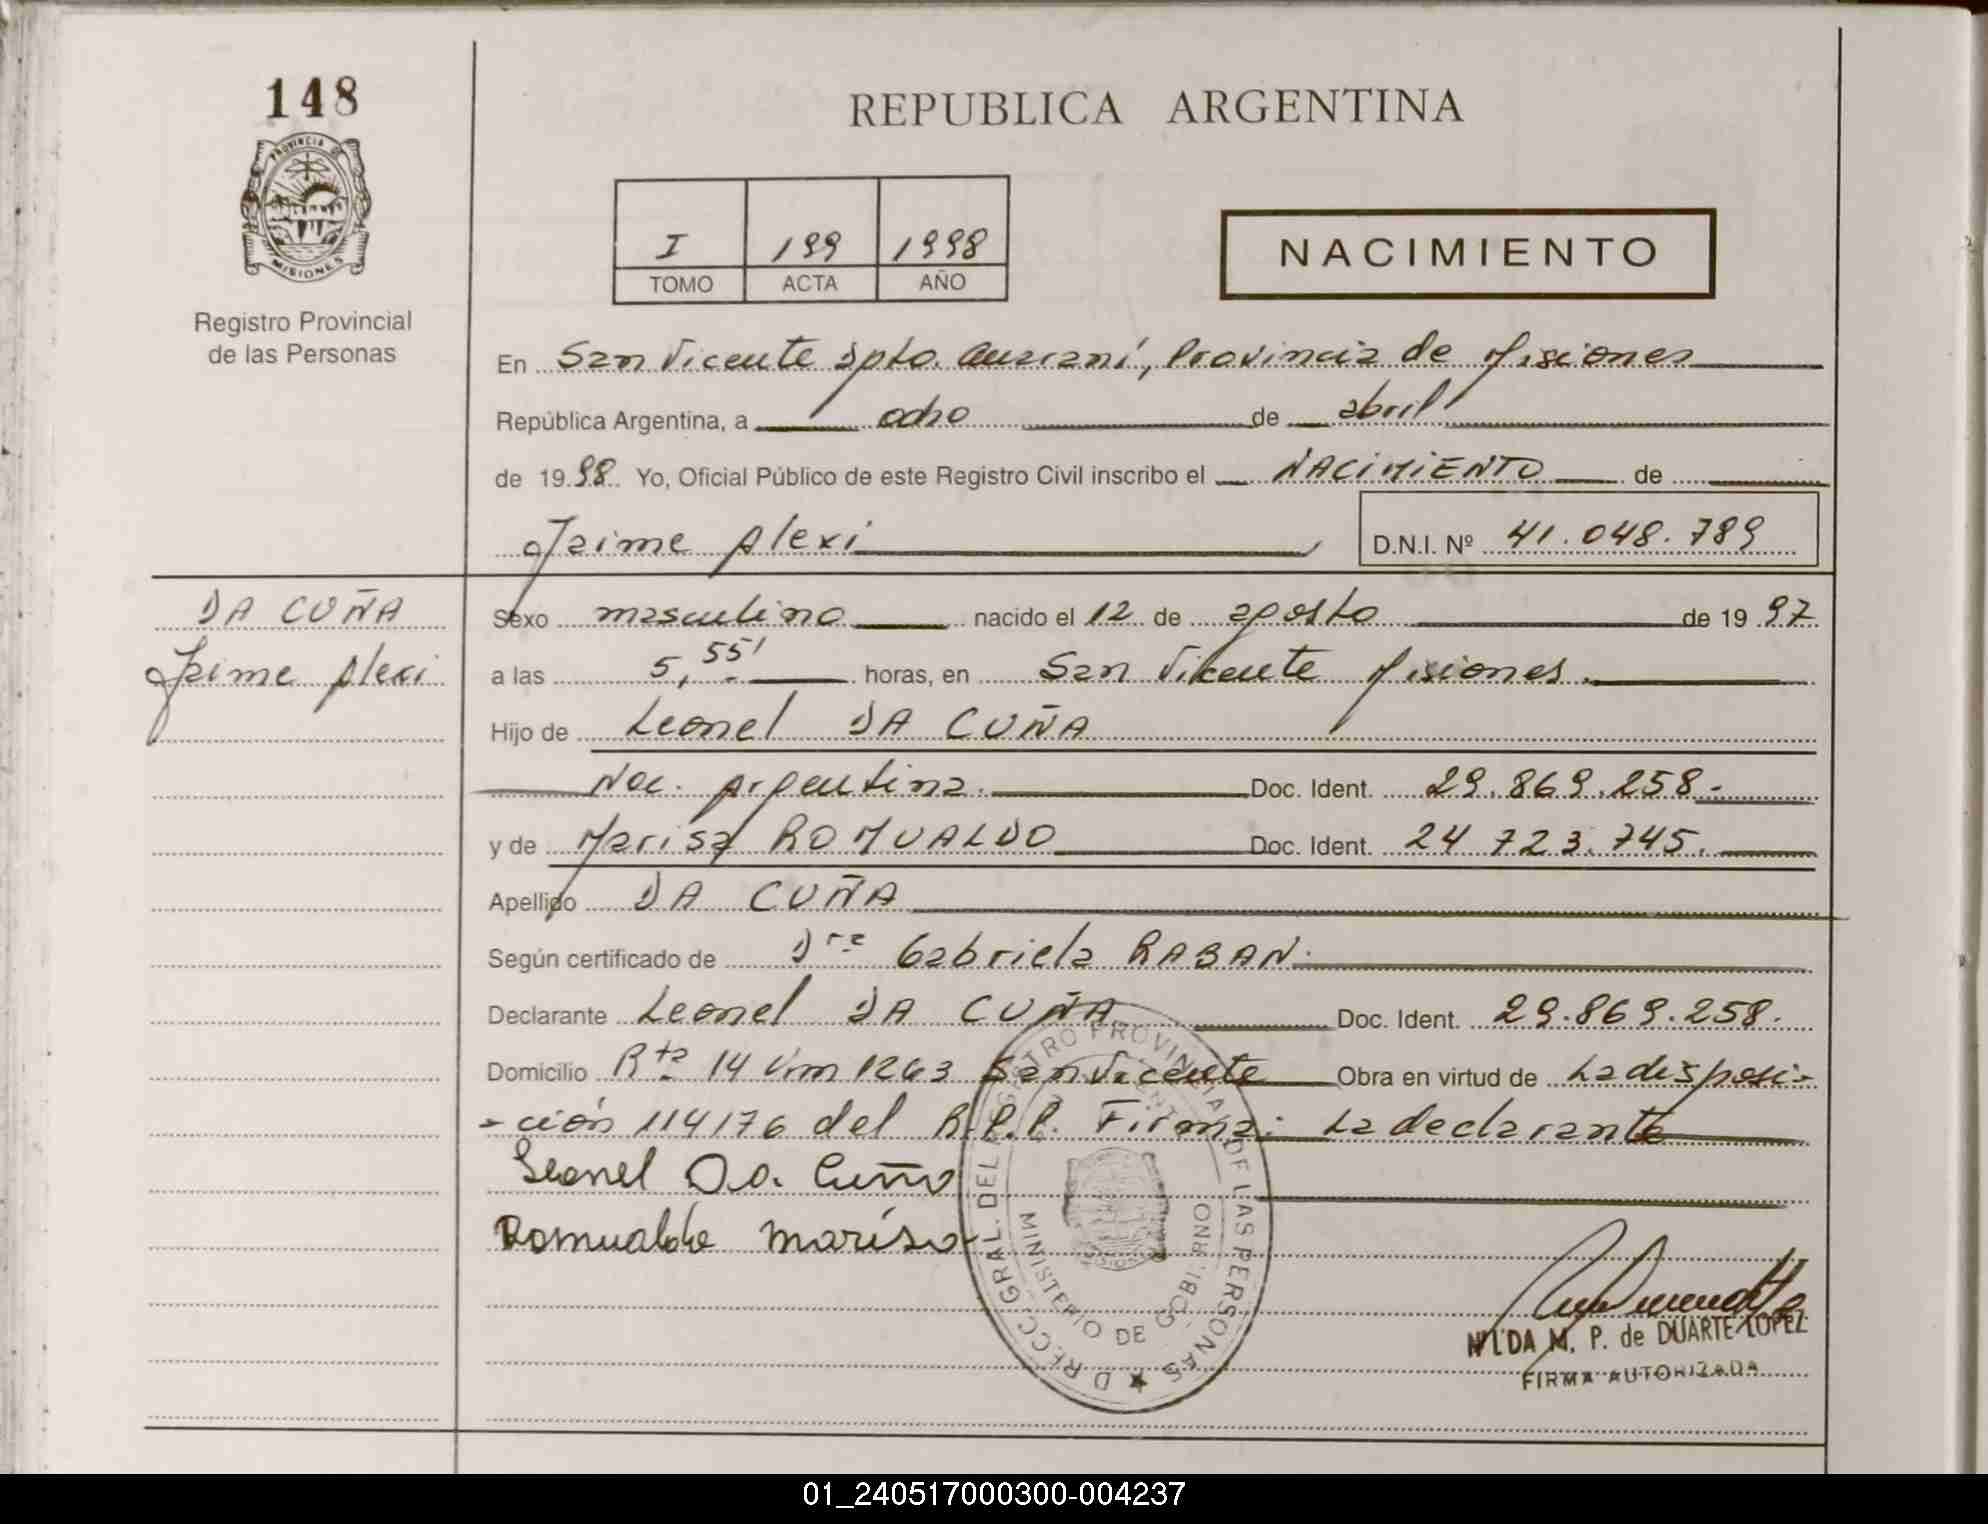 148
PROVINCIA DE
MISIONES
Registro Provincial
de las Personas
REPUBLICA ARGENTINA
I 199 1998
TOMO ACTA AÑO
NACIMIENTO
En San Vicente Dpto. Guaraní, Provincia de Misiones
República Argentina, a ocho de abril
de 1998. Yo, Oficial Público de este Registro Civil inscribo el NACIMIENTO de
Jaime Alexi D.N.I. Nº 41.048.789
DA CUÑA
Jaime Alexi
Sexo masculino nacido el 12 de agosto de 1997
a las 5,55' horas, en San Vicente Misiones.
Hijo de Leonel DA CUÑA
Nac. Argentina. Doc. Ident. 29.869.258.-
y de Marisa ROMUALDO Doc. Ident. 24 723.745.
Apellido DA CUÑA
Según certificado de Dra Gabriela RABAN.
Declarante Leonel DA CUÑA Doc. Ident. 29.869.258.
Domicilio Rta 14 Km 1263 San Vicente Obra en virtud de La disposi-
-ción 114176 del R.P.P. Firma: La declarante
Leonel Da. Cuña
Romualdo Marisa
DIRECC. GRAL. DEL REGISTRO PROVINCIAL DE LAS PERSONAS
MINISTERIO DE GOBIERNO
NILDA M. P. de DUARTE LOPEZ
FIRMA AUTORIZADA
01_240517000300-004237